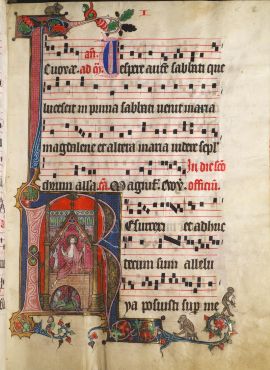 I
Vespere aute sabbati que
lucescit in prima sabbati uenit maria
magdalene et altera maria uidere sepl
In die sco
officiu
Resurrexi et adhuc
tecum sum allelu
ya posuisti sup me